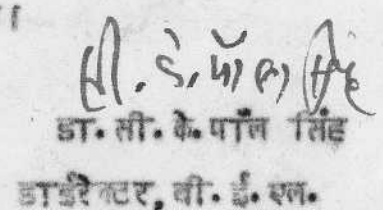 सी. के. पॉल सिंह
डा. सी. के. पॉल सिंह
डाईरेक्टर, वी. ई. एल.